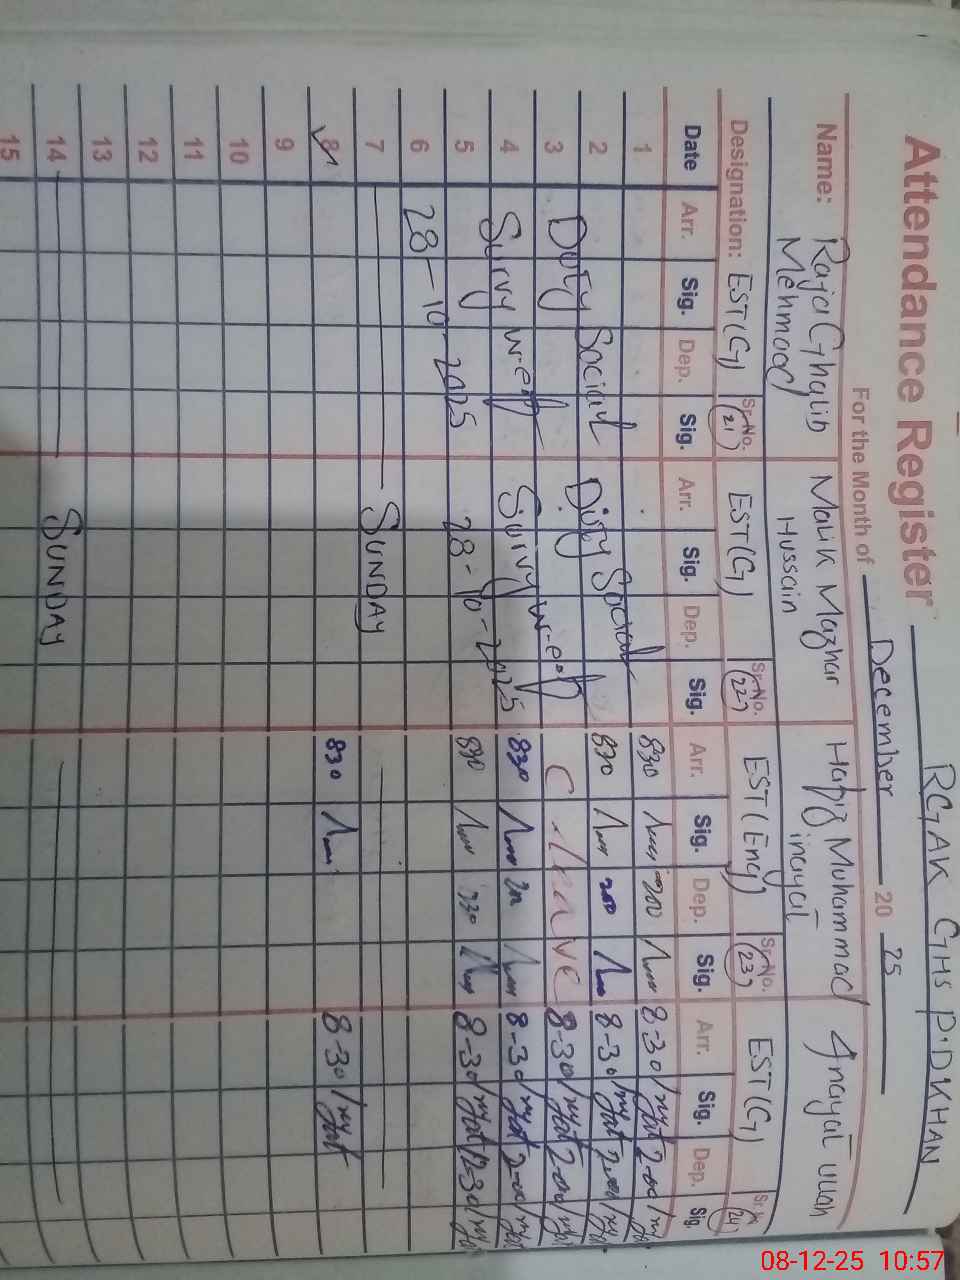 RGAK GHS P.D.KHAN
Attendance Register
For the Month of December 20 25
Name: Raja Ghalib Mehmood
Malik Mazhar Hussain
Hafiz Muhammad inayat
Inayat ullah
Designation: EST(G) Sr.No. (21) EST(G) Sr.No. (22) EST(Eng) Sr.No. (23) EST(G) Sr.No. (24)
Date Arr. Sig. Dep. Sig. Arr. Sig. Dep. Sig. Arr. Sig. Dep. Sig. Arr. Sig. Dep. Sig.
1 830 200 8-30 2-00
2 Duty Social Duty Social 830 200 8-30 2-00
3 C leave 8-30 2-00
4 Survy w-e-f Survy w-e-f 830 8-30 2-00
5 830 8-30
6 28-10-2025 28-10-2025
7 SUNDAY
8 830 8-30
9
10
11
12
13
14 SUNDAY
15
08-12-25 10:57